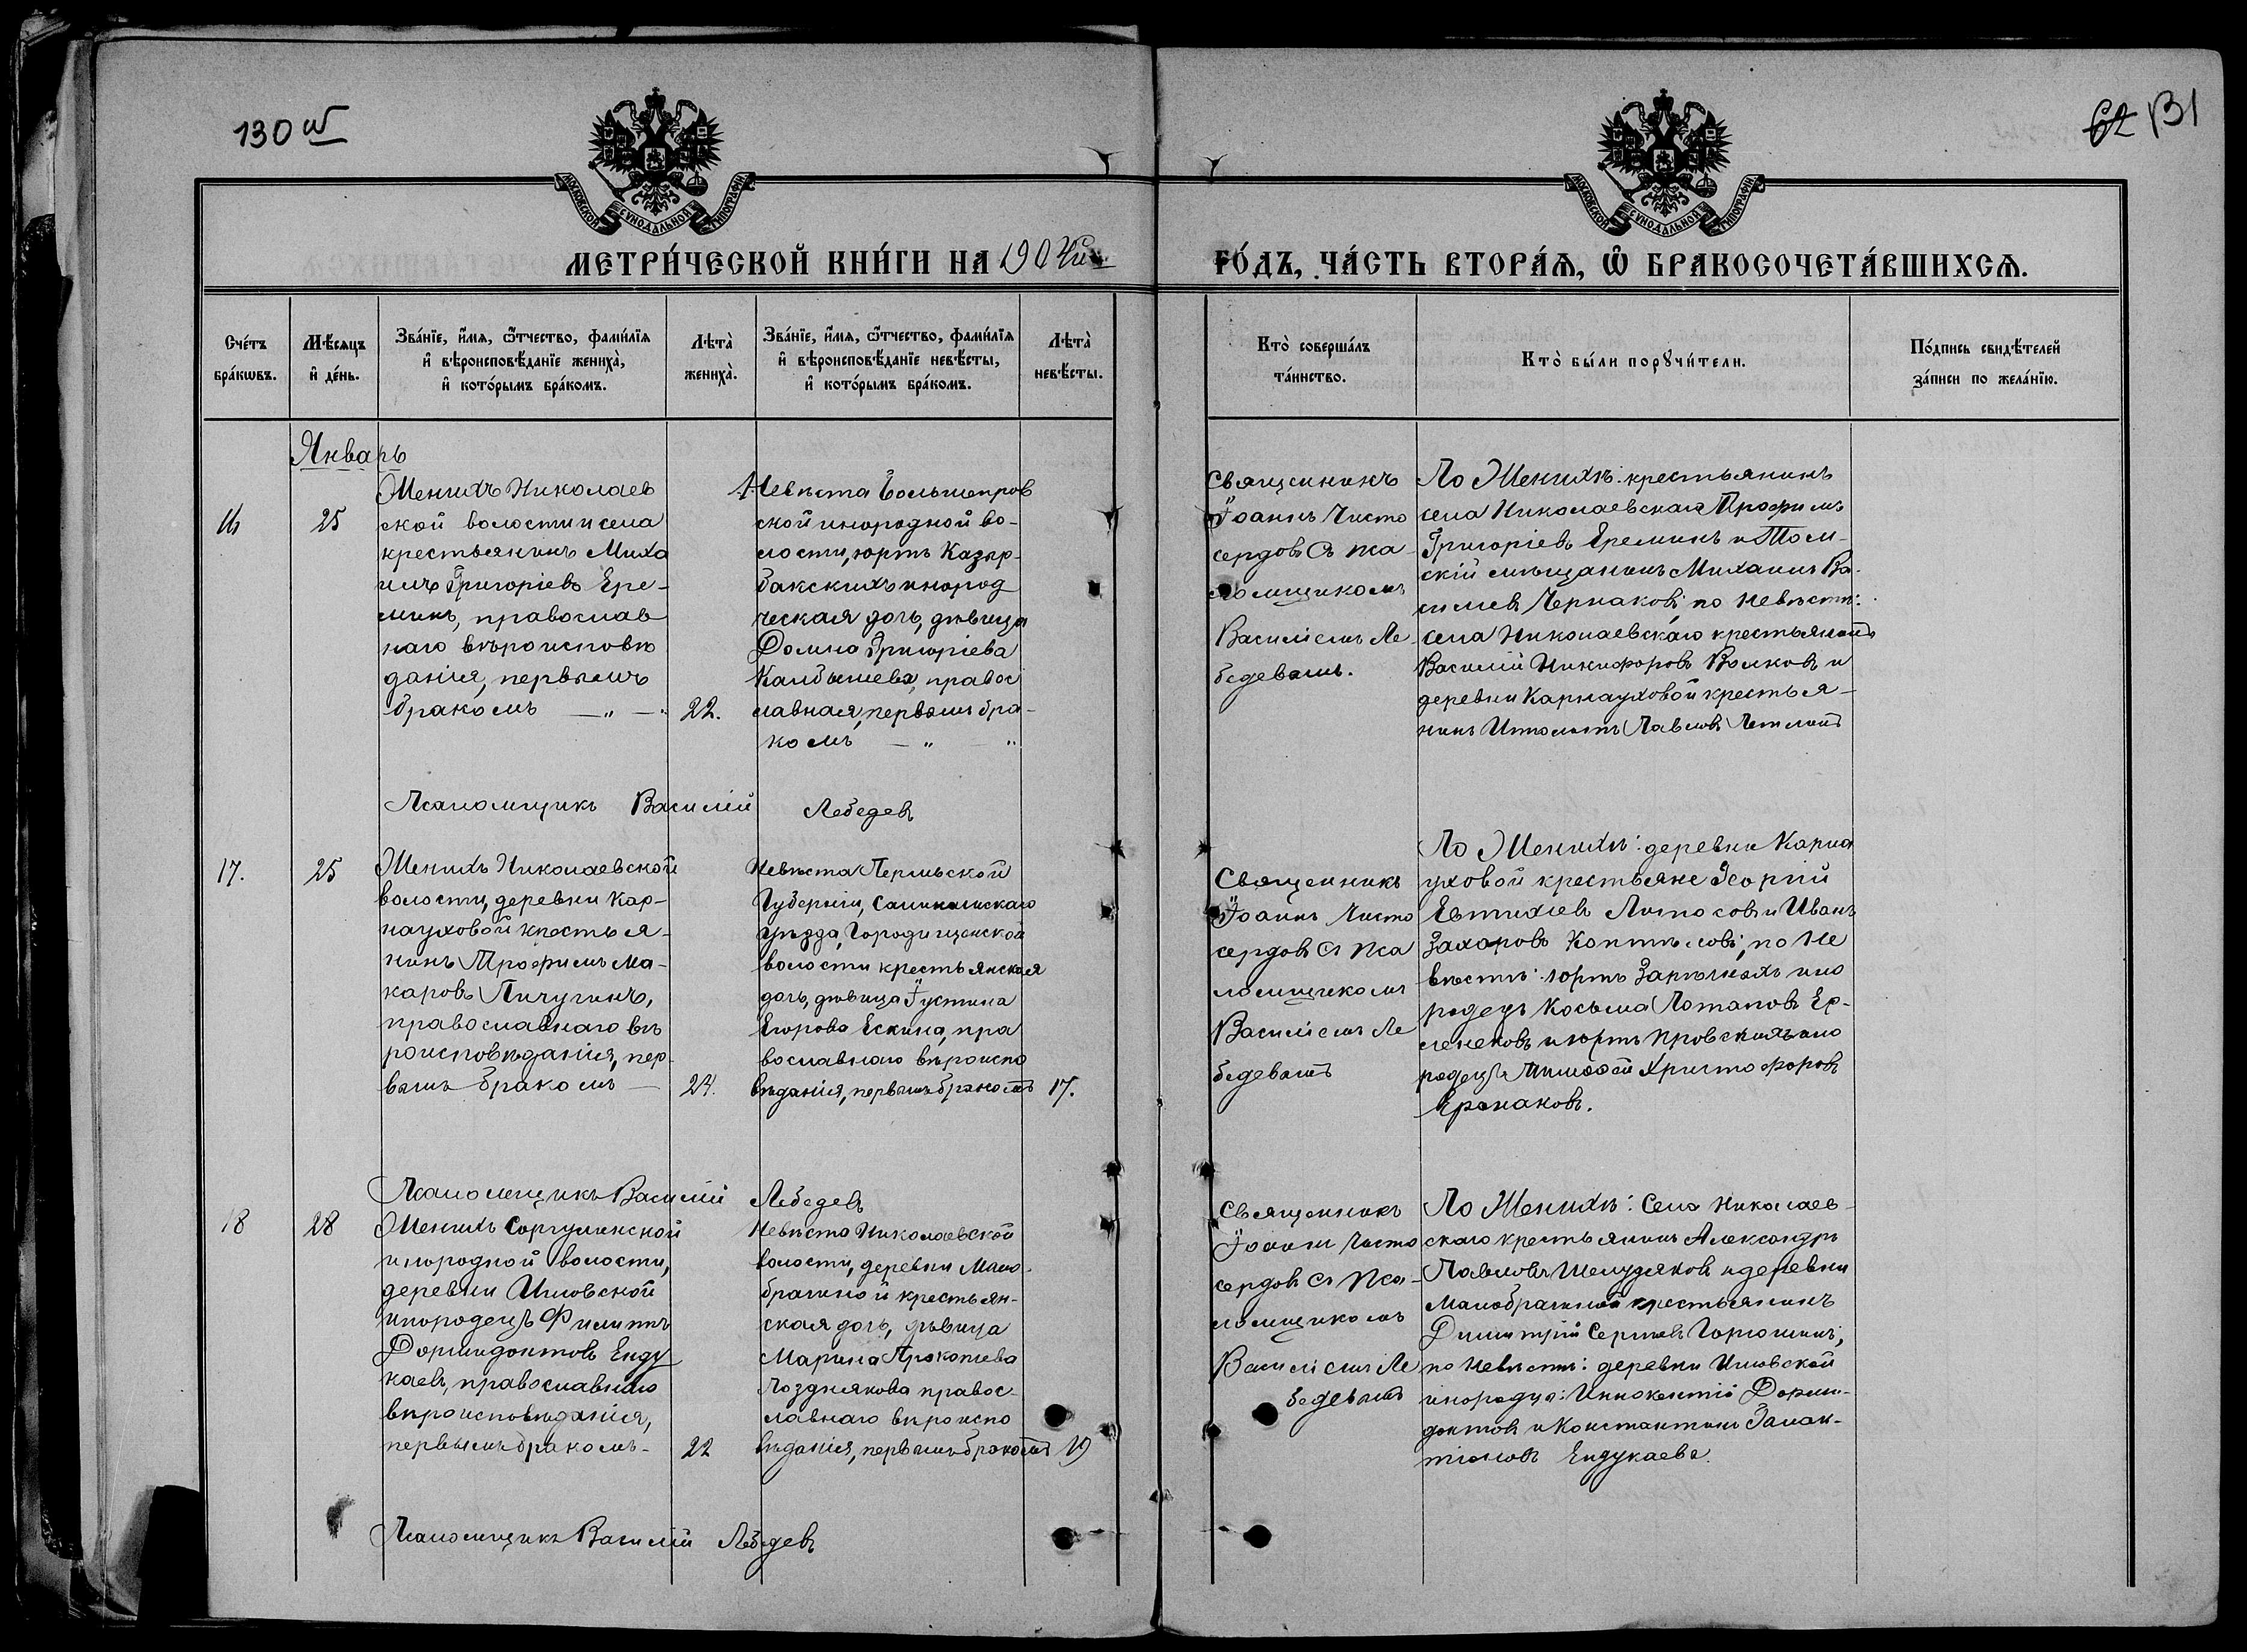 130 об
62 131
МОСКОВСКОЙ СѴНОДАЛЬНОЙ ТИПОГРАФІИ
МОСКОВСКОЙ СѴНОДАЛЬНОЙ ТИПОГРАФІИ
МЕТРИ́ЧЕСКОЙ КНИ́ГИ НА 1904й
ГО́ДЪ, ЧА́СТЬ ВТОРА́Ѧ, Ѡ҆ БРАКОСОЧЕТА́ВШИХСѦ.
Сче́тъ бра́кѡвъ.
Мѣ́сѧцъ и҆ де́нь.
Зва́нїе, и҆́мѧ, ѻ҆́тчество, фами́лїѧ
и҆ вѣроисповѣ́данїе жениха̀,
и҆ кото́рымъ бра́комъ.
Лѣта̀ жениха̀.
Зва́нїе, и҆́мѧ, ѻ҆́тчество, фами́лїѧ
и҆ вѣроисповѣ́данїе невѣ́сты,
и҆ кото́рымъ бра́комъ.
Лѣта̀ невѣ́сты.
Кто̀ соверша́лъ
та́инство.
Кто̀ бы́ли порꙋчи́тели.
По́дпись свидѣ́телей
за́писи по жела́нїю.
Январь
16
25
Женихъ Николаев
ской волости и села
крестьянинъ Миха
илъ Григоріевъ Ере-
минъ, православ
наго вѣроисповѣ
данія, первымъ
бракомъ — " —
22.
Невѣста Большепров
ской инородной во-
лости, юртъ Казыр-
бакскихъ инород
ческая дочь, дѣвица
Домна Григоріева
Калбышева, правос
лавная, первымъ бра-
комъ — " — "
Священникъ
Іоаннъ Чисто
сердовъ съ пса-
ломщикомъ
Василіемъ Ле-
бедевымъ.
По Женихѣ: крестьянинъ
села Николаевскаго Трофимъ
Григоріевъ Ереминъ и Том-
скій мѣщанинъ Михаилъ Ва-
сильевъ Черпаковъ; по Невѣстѣ:
села Николаевскаго крестьянинъ
Василій Никифоровъ Волковъ и
деревни Карнауховой крестья-
нинъ Ипполитъ Павловъ
Псаломщикъ Василій Лебедевъ
17.
25
Женихъ Николаевской
волости, деревни Кар-
науховой крестья-
нинъ Трофимъ Ма-
каровъ Пичугинъ,
православнаго вѣ
роисповѣданія, пер-
вымъ бракомъ —
24.
Невѣста Пермьской
Губерніи, Соликамскаго
Уѣзда, Городищенской
волости крестьянская
дочь, дѣвица Іустина
Егорова Ескина, пра
вославнаго вѣроиспо
вѣданія, первымъ бракомъ
17.
Священникъ
Іоаннъ Чисто
сердовъ съ Пса
ломщикомъ
Василіемъ Ле
бедевымъ
По Женихѣ: деревни Карна
уховой крестьяне Георгій
Евтихіевъ и Иванъ
Захаровъ по Не
вѣстѣ: юртъ Зарѣчныхъ ино
родецъ Косьма Потаповъ Ер-
леневъ и юртъ Провскихъ ино
родецъ Тимофей Христофоровъ
Ермаковъ.
Псаломщикъ Василій Лебедевъ
18
28
Женихъ Соргулинской
инородной волости,
деревни Игловской
инородецъ Филиппъ
Дормидонтовъ Енду
каевъ, православнаго
вѣроисповѣданія,
первымъ бракомъ-
22
Невѣста Николаевской
волости, деревни Мало-
брагиной крестьян-
ская дочь, дѣвица
Марина Прокопіева
Позднякова правос-
лавнаго вѣроиспо
вѣданія, первымъ бракомъ
19
Священникъ
Іоаннъ Чисто
сердовъ съ Пса-
ломщикомъ
Василіемъ Ле
бедевымъ
По Женихѣ: Села Николаев-
скаго крестьянинъ Александръ
Павловъ Шелудяковъ и деревни
Малобрагиной крестьянинъ
Димитрій Сергѣевъ Горюшинъ;
по Невѣстѣ: деревни Игловской
инородцы: Иннокентій Дорми-
донтовъ и Константинъ Галак-
тіоновъ Ендукаевы.
Псаломщикъ Василій Лебедевъ